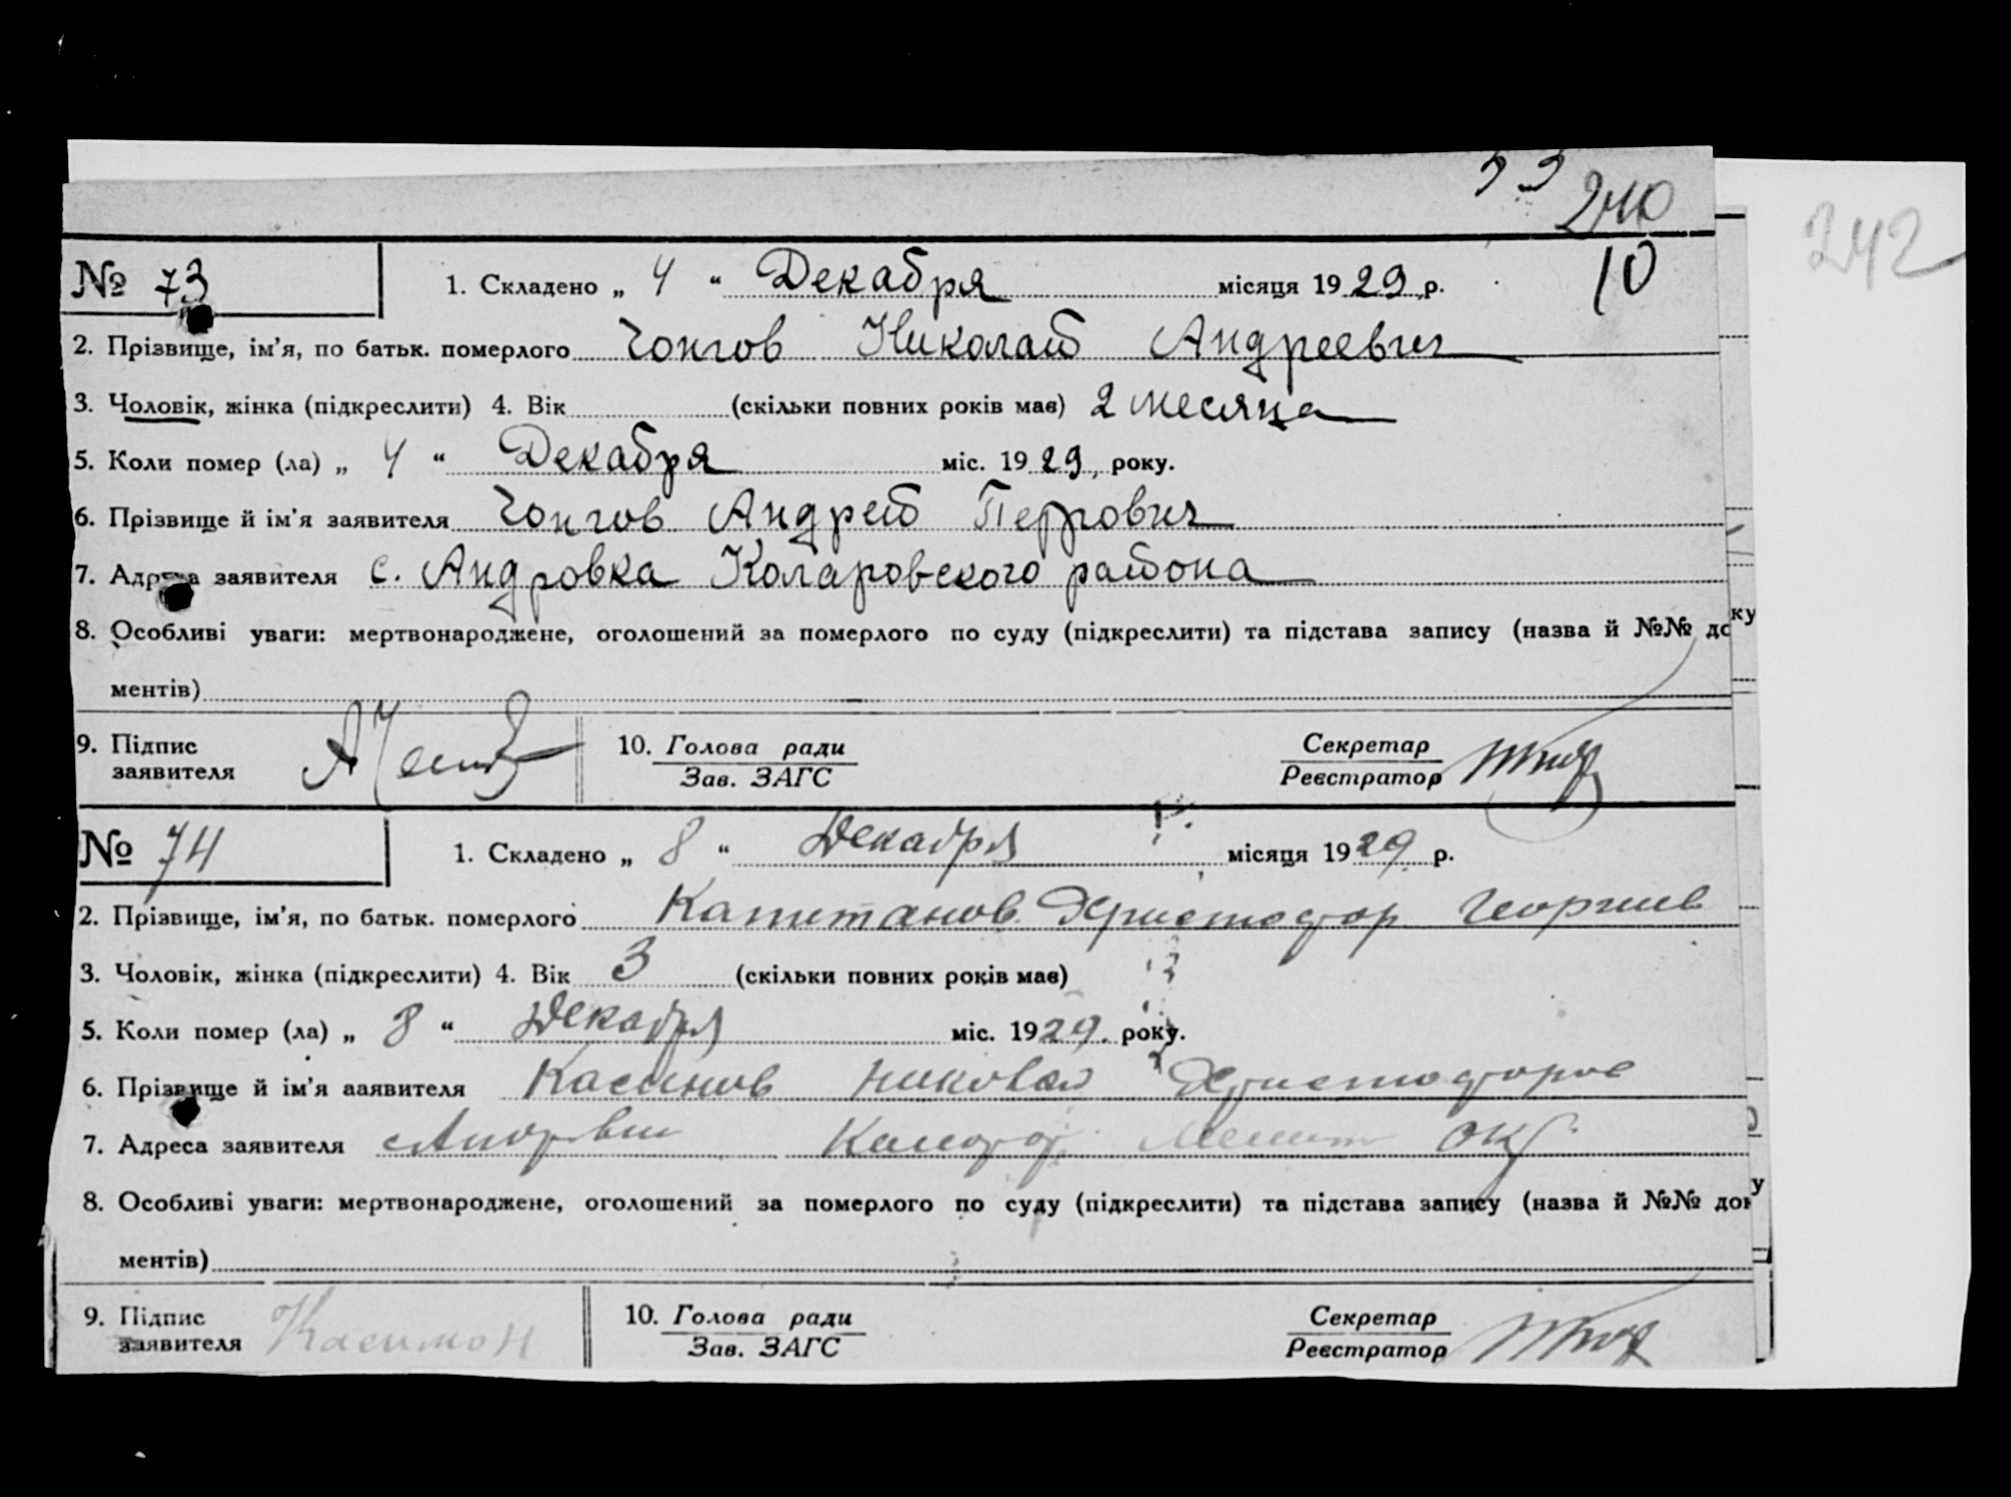 240
242
10
№ 73 1. Складено „ 4 “ Декабря місяця 1929 р.
2. Прізвище, ім’я, по батьк. померлого Чонгов Николай Андреевич
3. Чоловік, жінка (підкреслити) 4. Вік (скільки повних років має) 2 месяца
5. Коли помер (ла) „ 4 “ Декабря міс. 1929, року.
6. Прізвище й ім’я заявителя Чонгов Андрей Петрович
7. Адреса заявителя с. Андровка Коларовского района
8. Особливі уваги: мертвонароджене, оголошений за померлого по суду (підкреслити) та підстава запису (назва й №№ доку
ментів)
9. Підпис заявителя 10. Голова ради Секретар
Зав. ЗАГС Реєстратор
№ 74 1. Складено „ 8 “ Декабря місяця 1929 р.
2. Прізвище, ім’я, по батьк. померлого Капитанов Христофор Георгиев
3. Чоловік, жінка (підкреслити) 4. Вік 3 (скільки повних років має)
5. Коли помер (ла) „ 8 “ Декабря міс. 1929. року.
6. Прізвище й ім’яааявителя Николай Христофоров
7. Адреса заявителя
8. Особливі уваги: мертвонароджене, оголошений за померлого по суду (підкреслити) та підстава запису (назва й №№ доку
ментів)
9. Підпис заявителя 10. Голова ради Секретар
Зав. ЗАГС Реєстратор